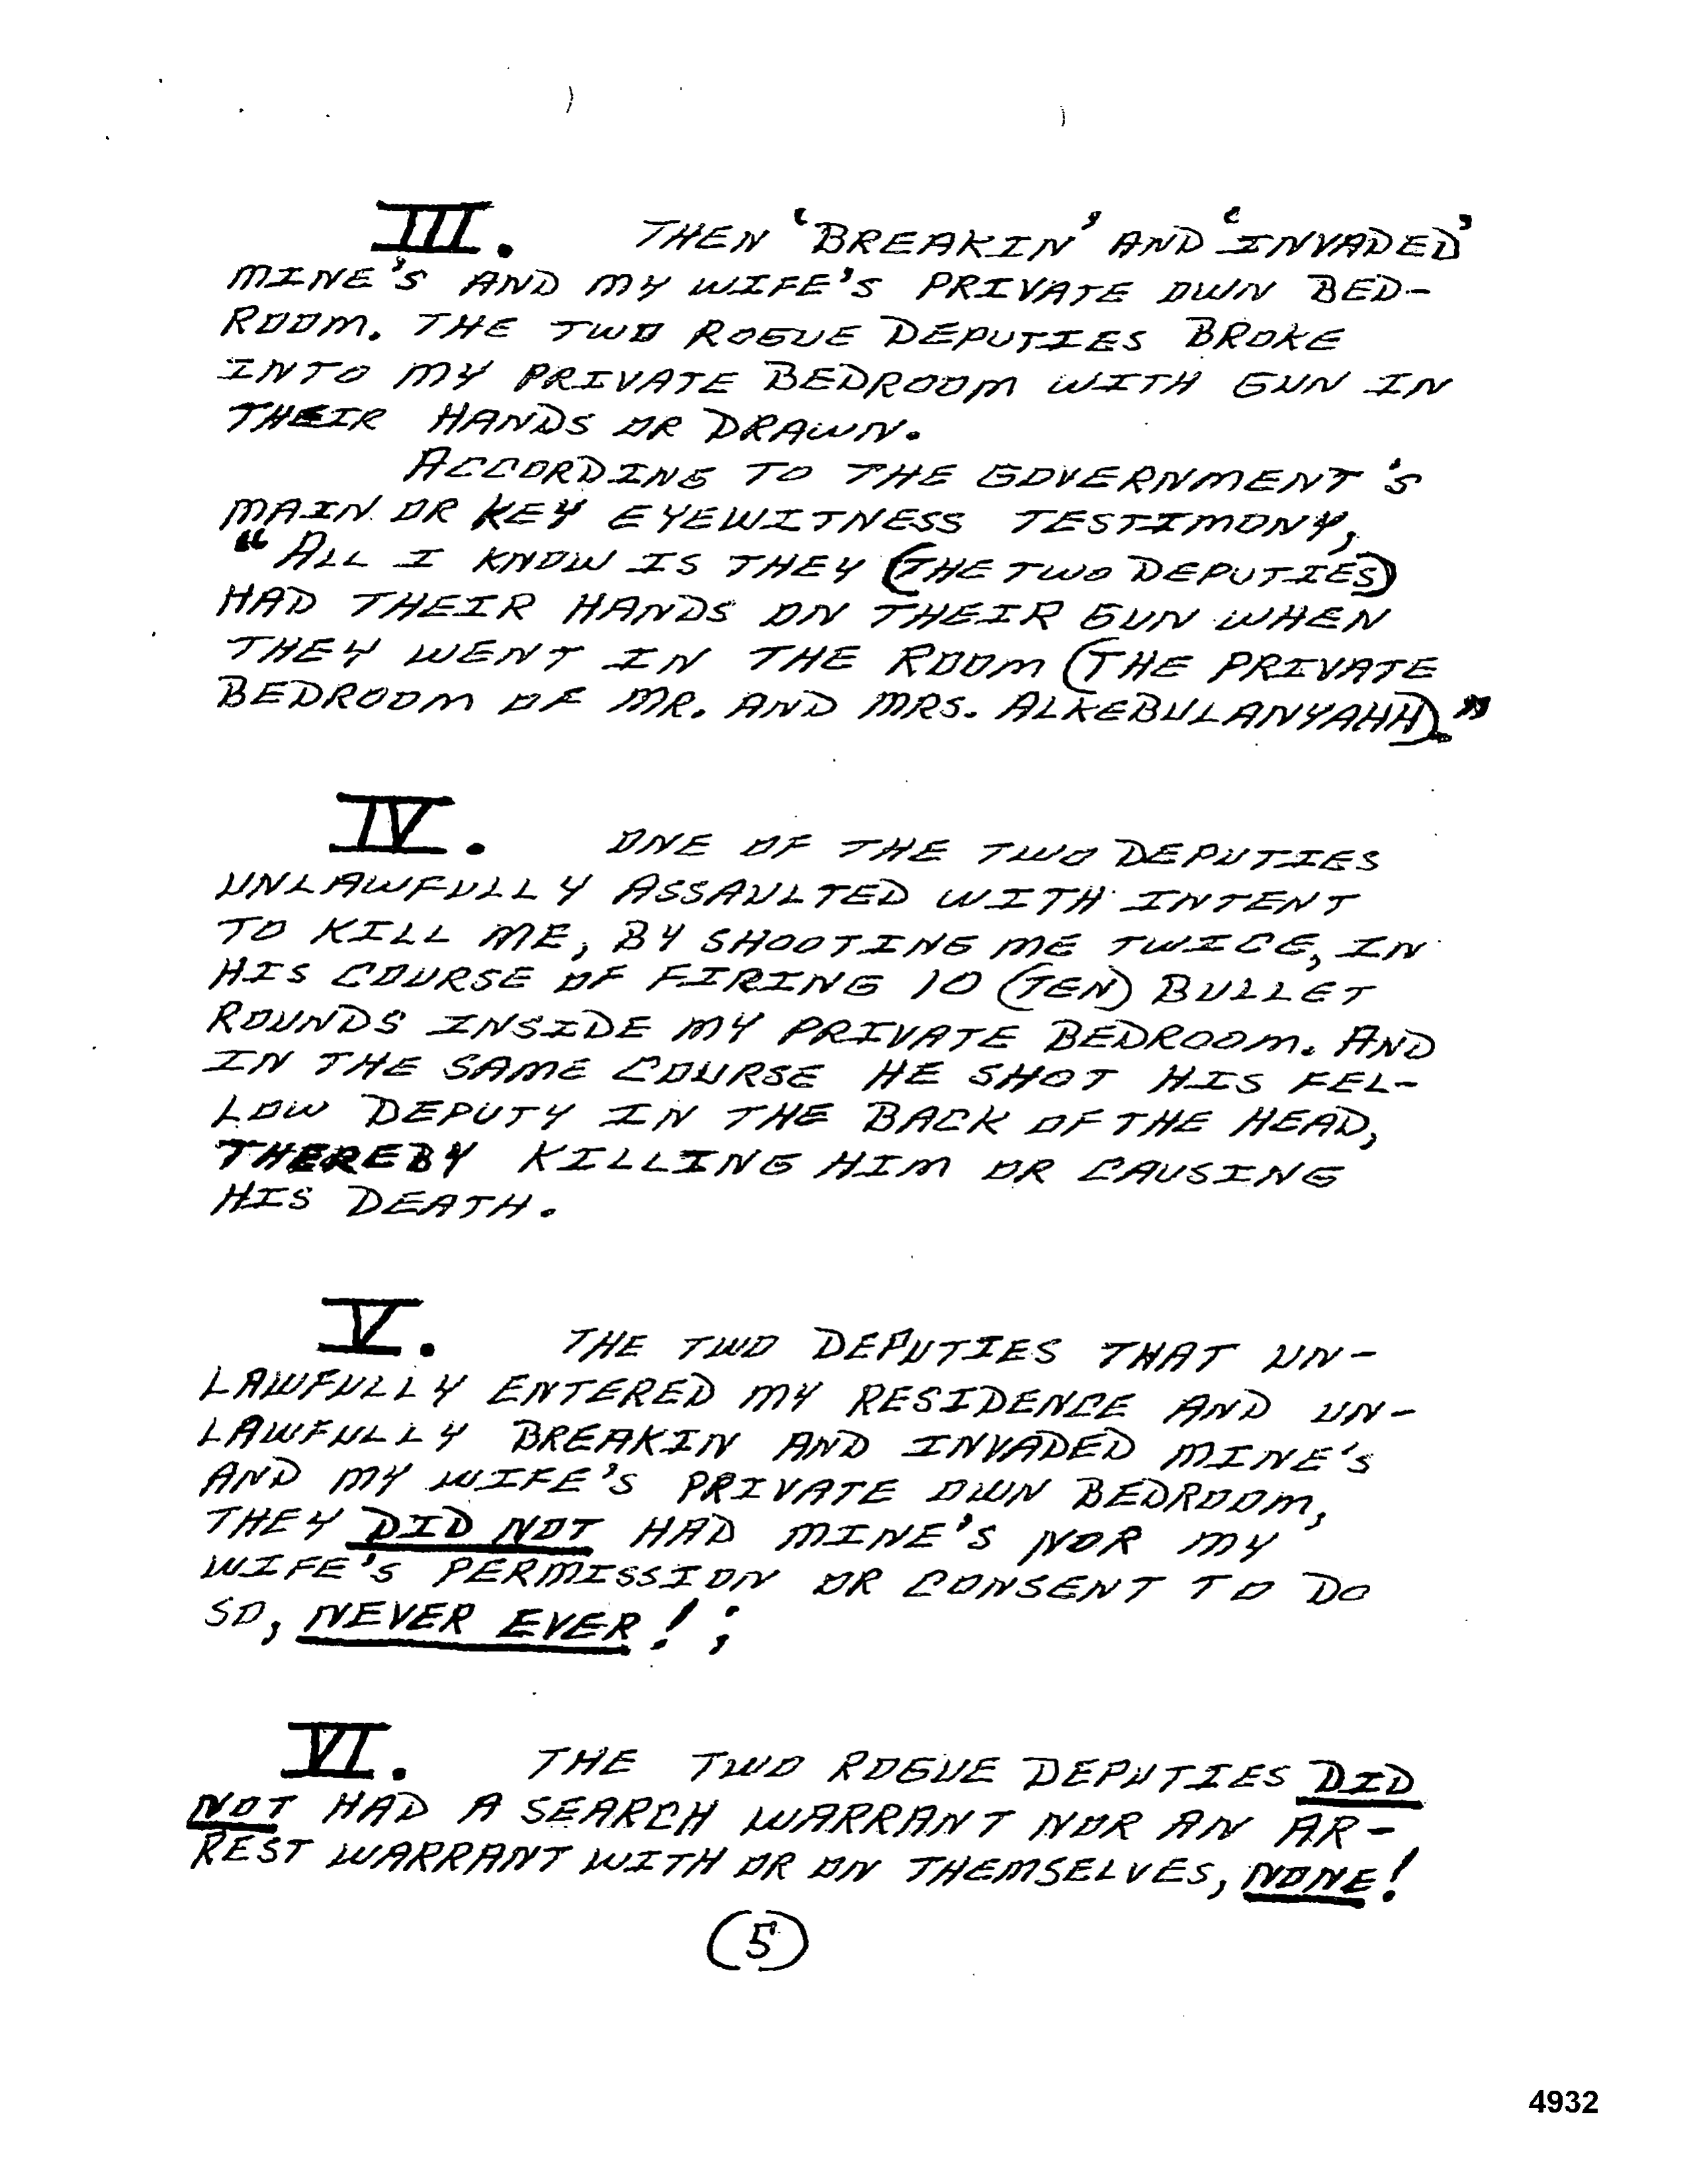 III. THEN 'BREAKIN' AND 'INVADED'
MINE'S AND MY WIFE'S PRIVATE OWN BED-
ROOM. THE TWO ROGUE DEPUTIES BROKE
INTO MY PRIVATE BEDROOM WITH GUN IN
THEIR HANDS OR DRAWN.
ACCORDING TO THE GOVERNMENT'S
MAIN OR KEY EYEWITNESS TESTIMONY,
"ALL I KNOW IS THEY (THE TWO DEPUTIES)
HAD THEIR HANDS ON THEIR GUN WHEN
THEY WENT IN THE ROOM (THE PRIVATE
BEDROOM OF MR. AND MRS. ALKEBULANYAHH)."
IV. ONE OF THE TWO DEPUTIES
UNLAWFULLY ASSAULTED WITH INTENT
TO KILL ME, BY SHOOTING ME TWICE, IN
HIS COURSE OF FIRING 10 (TEN) BULLET
ROUNDS INSIDE MY PRIVATE BEDROOM. AND
IN THE SAME COURSE HE SHOT HIS FEL-
LOW DEPUTY IN THE BACK OF THE HEAD,
THEREBY KILLING HIM OR CAUSING
HIS DEATH.
V. THE TWO DEPUTIES THAT UN-
LAWFULLY ENTERED MY RESIDENCE AND UN-
LAWFULLY BREAKIN AND INVADED MINE'S
AND MY WIFE'S PRIVATE OWN BEDROOM,
THEY DID NOT HAD MINE'S NOR MY
WIFE'S PERMISSION OR CONSENT TO DO
SO, NEVER EVER!;
VI. THE TWO ROGUE DEPUTIES DID
NOT HAD A SEARCH WARRANT NOR AN AR-
REST WARRANT WITH OR ON THEMSELVES, NONE!
(5)
4932